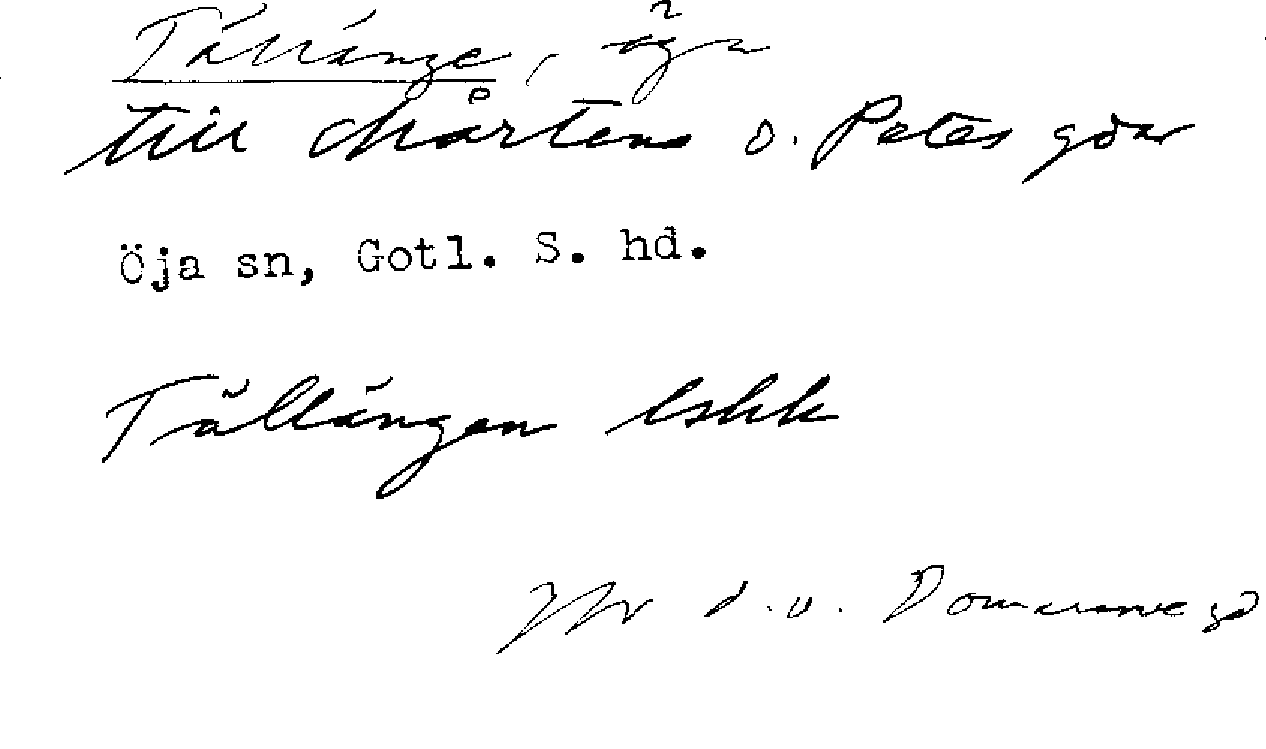 Tällänge, äga
till Mårtens o. Petes gdar
Öja sn, Gotl. S. hd.
Tällängen lskk
d.v. Domarve gd